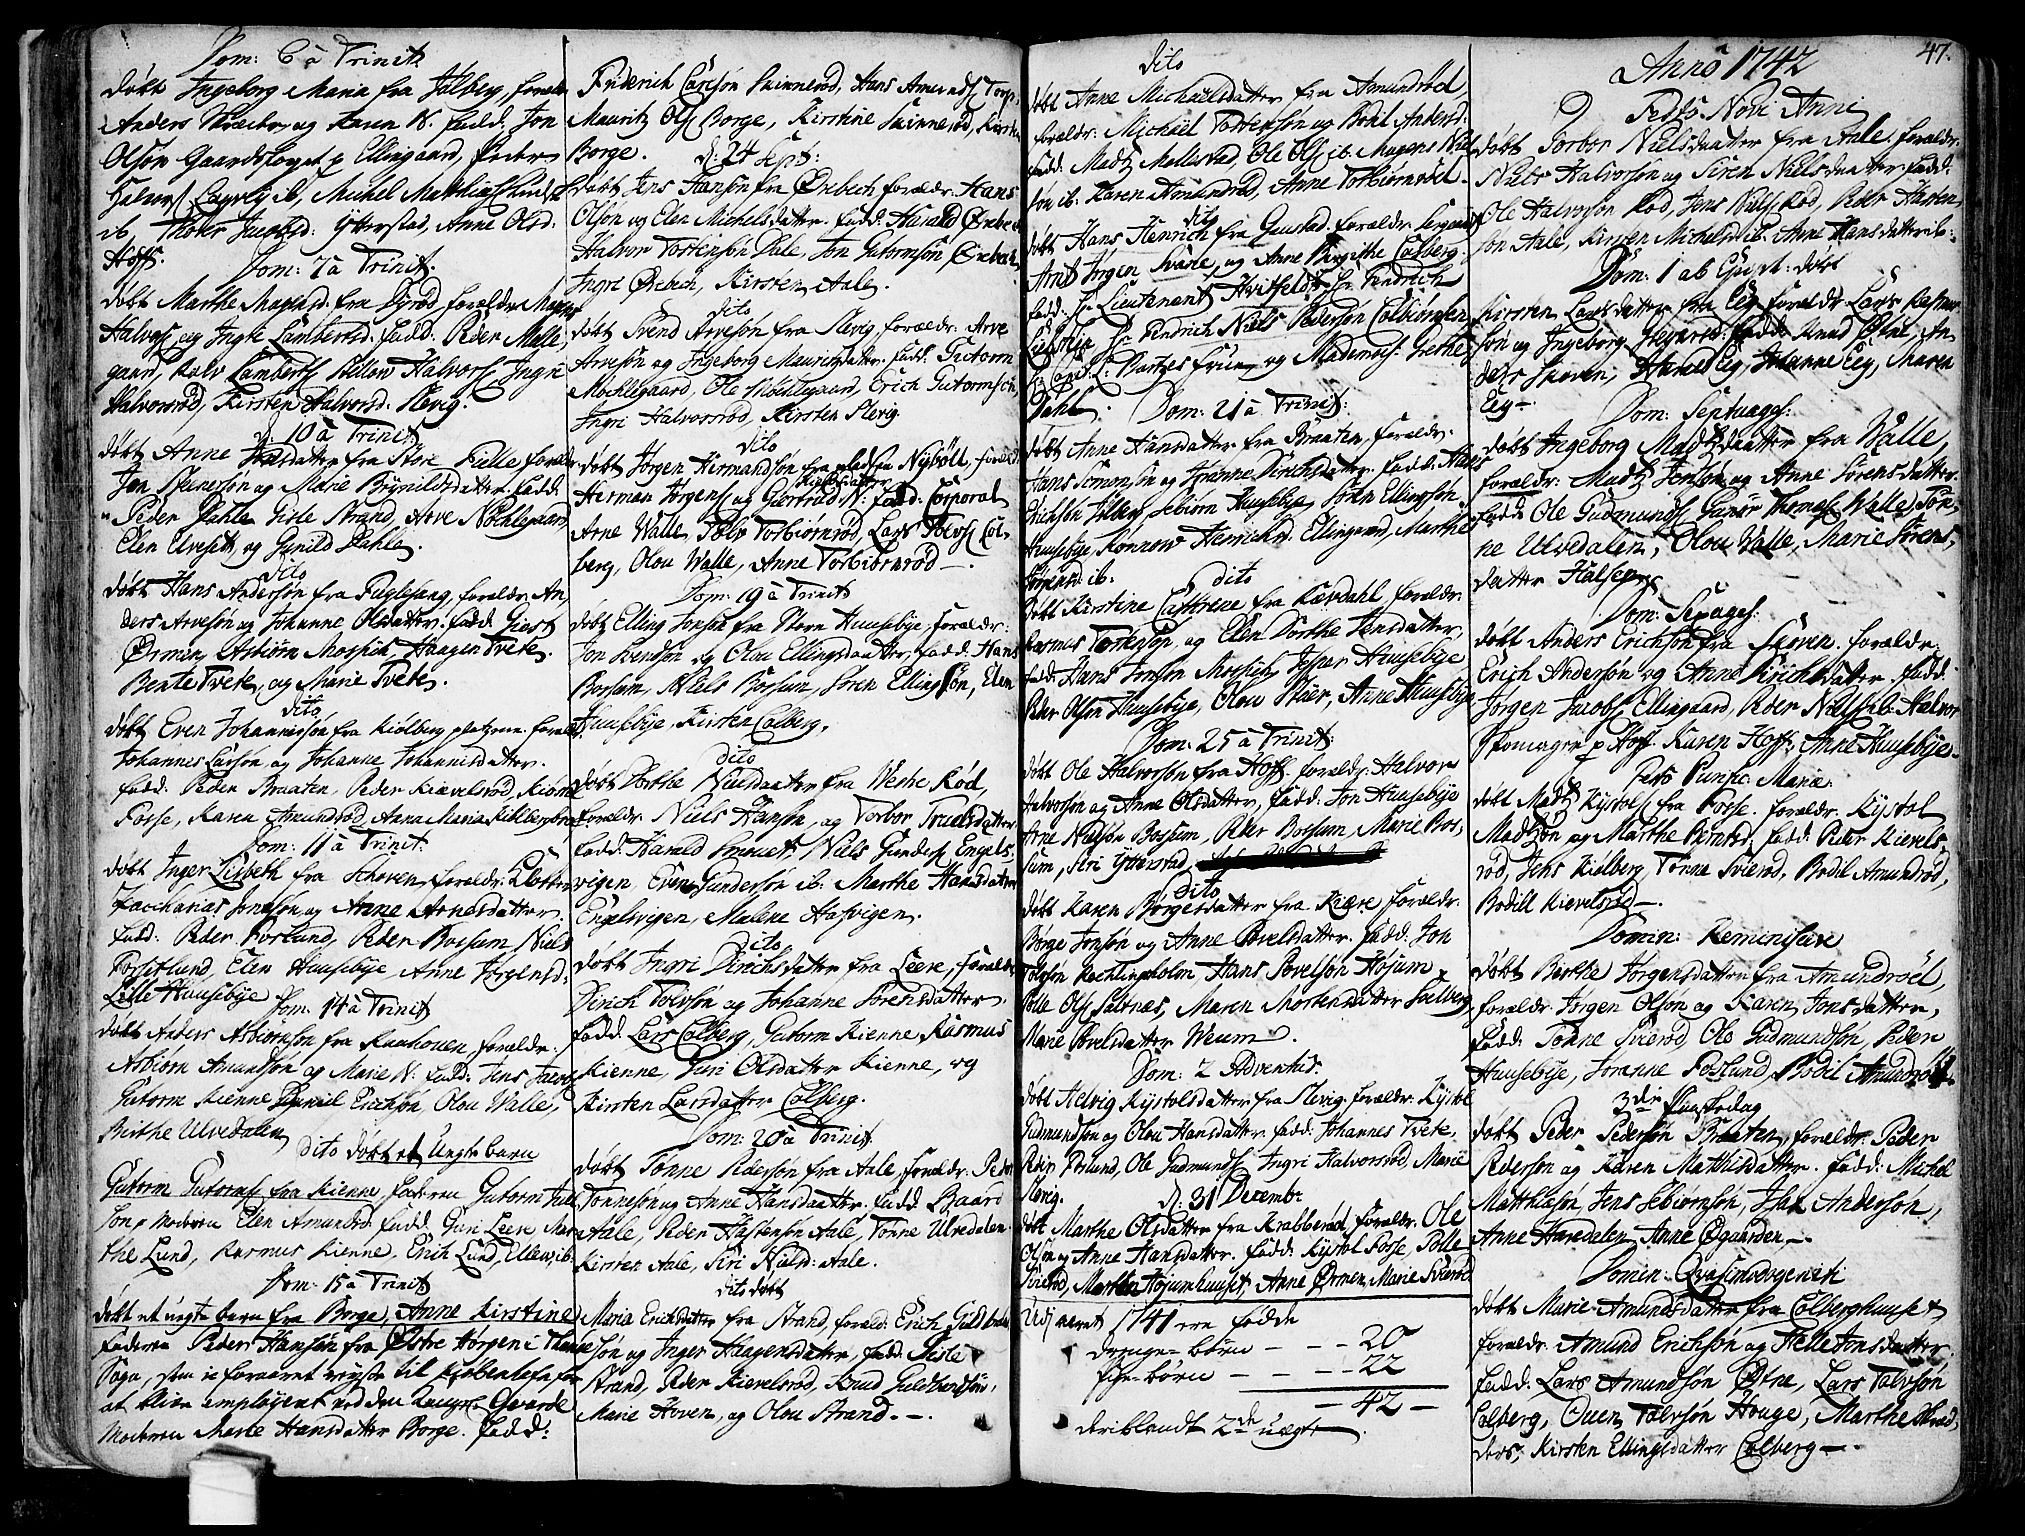 Dom: 6 à Trinit:
døbt Ingeborg Maria fra Kølberg, foræld:
Anders Skreder og Karen N. fadd: Jon
Olsøn Gaardsfoget p Ellingaard, Peder
Halvors ib, Michel Matthias
ib, Ytterstad, Anne Olsd:
Hoff.
Dom: 7 à Trinit:
døbt Marthe Magnisd: fra Dyrød, foræld: Magnus
Halvors og Ingri Lambertsd: fadd: Peder Melle,
gaard, Rolv Lamberts Halvors Ingri
Halvorsrød, Kirsten Halvorsd: Slevig.
D. 10 à Trinit
døbt Anne Jonsdatter fra Store Fielle foræld:
Jon Steenersøn og Marie Brynildsdatter. fadd:
Peder Dahle Gisle Strand, Arve Nøchlegaard,
Elen Elvesitt, og Gunild Dahle.
dito
døbt Hans Andersøn fra Fuglesang, foræld: An
ders Arvesøn og Johanne Olsdatter. fadd. Giest
Ørmen, Asbiørn Moseich, Haagen Tvete.
Bente Tvete, og Marie Tvete.
dito
døbt Even Johannessøn fra Kiølberg platzene. foræld:
Johannes Larsøn og Johanne Johannisdatter.
fadd: Peder Braaten. Peder Kievelsrød, Kiøstel
Fosse, Karen Amundrød, Anna Maria Kiølberg
Dom: 11 à Trinit:
døbt Inger Lisbeth fra Schoven, foræld: Closter
Zaccharias Jonssøn og Anne Arnesdatter.
fadd: Peder Roslund, Peder Bossum, Niels
Forsetlund, Elen Huusebye, Anne Jørgensd:
Lille Huusebye
Dom: 14 à Trinit
døbt Anders Asbiørnsøn fra Raahouen foræld:
Asbiørn Amundsøn og Marie N: fadd: Jens Jacobs
Gutorm Kienne Daniel Erichsøn, Olou Walle,
Birthe Ulvedalen
dito døbt et Ungte barn
Gutorm Gutorms fra Kienne faderen Gutorm Juel
søn, Moderen Elen Amundsd: fadd: Guri Leere Mar
the Lund, Rasmus Kienne, Erich Lund, Ellen, ib.
Dom: 15 à Trinit
døbt et uægte barn fra Borge, Anne Kirstine
faderen Peder Hansøn fra Østre Hørgen i Thune
Sogn, som er foraaret reyste til Kiøbenhafn for
at blive employeret ved den Kongel: Gvarde
Moderen Marie Hansdatter Borge. fadd:
Friderich Carlsøn Skinnerød, Hans Amunds Torp,
Mauritz Ols Borge, Kirstine Skinnerød, Kirsten
Borge.
d. 24 Sept:
døbt Jens Hansøn fra Ørebech foræld: Hans
Olsøn og Elen Michelsdatter. fadd: Harald Ørebech
Halvor Tostensøn Dale, Jon Gutormsøn Ørebech
Ingri Ørebech, Kirsten Aale.
dito
døbt Svend Arvesøn fra Slevig, foræld: Arve
Arvesøn og Ingeborg Mauritsdatter. fadd: Gutorm
Mochlegaard, Ole Mochlegaard, Erich Gutormsøn,
Ingri Halvorsrød, Kirsten Slevig.
dito
døbt Jørgen Hermandsøn fra pladsen Nybølt, foræld:
Herman Jørgens og Giertrud N: fadd: Corporal
Arne Walle, Tolv Torbiørnrød, Lars Tolvs Col-
berg, Olou Walle, Anne Torbiørnrød —
Dom: 19 à Trinit:
døbt Elling Jonsøn fra Store Huusebye, foræld:
Jon Svendsøn og Olou Ellingsdaatter, fadd: Hans
Borsum, Niels Bossum, Søren Ellingsøn, Elen
Huusebye, Kirsten Colberg.
dito
døbt Dorthe Nielsdaatter fra Vestre Rød,
foræld: Niels Hansøn, og Torbor Truelsdatter
fadd: Harald Smeuet, Niels Gunders Engels,
vigen, Even Gundersøn ib: Marthe Hansdatter
Engelsvigen, Malene Hasvigen.
dito
døbt Ingri Dirichsdatter fra Leere, foræld:
Dirich Tolvsøn og Johanne Sørensdatter.
fadd: Lars Colberg, Gutorm Kienne Rasmus
Kienne, Guri Olsdatter Kienne, og
Kirsten Larsdatter Colberg.
Dom: 20 à Trinit:
døbt Tønne Pedersøn fra Aale, foræld: Peder
Tønnesøn og Anne Hansdaatter. fadd: Baard
Aale, Peder Hastensøn Aale, Tønne Ulvedalen
Kirsten Aale, Siri Nielsd: Aale.
dito døbt
Maria Erichsdatter fra Strand, foræld: Erich Guldbrand
søn og Inger Haagensdatter, fadd: Gisle
Strand, Peder Kievelsrød, Knud Guldbrandsøn,
Marie Hoven, og Olou Strand. —.
dito
døbt Anne Michaelsdatter fra Amundrød
foræld: Michael Tostensøn og Bodil Andersd:
fadd: Madtz Mellestad, Ole Ols ib. Magens Niel
søn ib. Karen Amundrød, Anne Torbiørnrød
dito
døbt Hans Henrich fra Gaustad. foræld: Sergiant
Arnt Jørgen Svane og Anne Birgithe Colberg
fadd: Hr Lieutenant Hvitfeldt, Hr Fendrich
Hr Fendrich Niels Pedersøn Colbiørnsen
Hr Capit: Fruen og Mademois: Grethe
Dahl.
Dom: 21 à Trinit:
døbt Anne Hansdatter fra Braaten, foræld:
Hans Simensøn og Johanne Dirichsdatter. fadd: Hans
Erichsøn Kølberg, Sebiørn Huusebye, Søren Ellingsøn
Huusebye, Rønnow Henrichsd. Ellingaard, Marthe
Sørensd: ib.
dito
døbt Kirstine Cathrine fra Kiærdahl, foræld:
Rasmus Torkilsøn, og Elen Dorthe Jensdatter,
fadd: Hans Jonsøn Mosich, Jesper Huusebye
Peder Olsøn Huusebye, Olou Kiær, Anne Huusebye
Dom: 25 à Trinit:
døbt Ole Halvorsøn fra Hoff. foræld: Halvor
Halvorsøn og Anne Olsdatter, fadd: Jon Huusebye
Arne Nielsøn Bossum, Peder Bossum, Marie Bos,
sum, Siri Ytterstad,
dito
døbt Karen Børgesdatter fra Kiære foræld:
Børge Jonsøn og Anne Povelsdatter. fadd: Jon
Tolvsøn Kochlingsholm, Hans Povelsøn Højum,
Polle Ols Saltnæs, Maren Mortensdatter Soelberg,
Marie Povelsdatter Weum.
Dom: 2 Adventus:
døbt Helvig Kystolsdatter fra Slevig. foræld: Kystol
Gudmundsøn og Olou Hansdatter. fadd: Johannes Tvete,
Peder Roslund, Ole Gudmunds Ingri Halvorsrød, Marie
Slevig.
d. 31 Decembr
døbt Marthe Olsdatter fra Krabberød, foræld: Ole
Olsen og Anne Hansdatter. fadd: Kystol Fosse, Polle
Svierød, Morten Højumhuuset, Anne Ørmen, Marie Svierød
Udj aaret 1741 ere fødde
drenge-børn — — — 20
pige-børn — — — 22
— 42 —
deriblandt 2de uægte.
47.
Anno 1742
Festo Novi Anni
døbt Torbor Nielsdaatter fra Aale. foræld:
Niels Halvorsøn og Siren Nielsdaatter. fadd:
Ole Halvorsøn Rød, Jens Niels Rød, Peder Hasten
søn Aale, Kirsten Michelsd: ib. Anne Hansdatter ib:
Dom: 1 ab Epiph: døbt
Kirsten Larsdatter fra Eeg, foræld: Lars Rasmus
søn og Ingeborg Halvorsd: fadd: Knud Østne, An
ders Skoven, Hans Eeg, Johanne Eeg, Maren
Eeg —
Dom: Septuages:
døbt Ingeborg Madtzdaatter fra Walle,
foræld: Madtz Jensøn og Anne Sørensdatter.
fadd: Ole Gudmunds Thomes Walle, Tøn-
ne Ulvedalen, Olou Walle, Marie Sørens,
datter Kalseprø
Dom: Sexages:
døbt Anders Erichsøn fra Skoven. foræld:
Erich Andersøn og Anne Dirichsdatter. fadd:
Jørgen Jacobs Ellingaard, Peder Niels ib. Halvor
p Hoff. Karen Hoff, Anne Huusebye.
Festo Purific: Mariæ
døbt Madtz Kystols fra Fosse. foræld: Kystol
Madtzøn og Marthe Berntsd: fadd: Peder Kievels,
rød, Jens Kiølberg, Tønne Svierød, Bodil Amundrød,
Bodill Kievelsrød —.
Domin: Reminiscere
døbt Birthe Jørgensdatter fra Amundrød,
foræld: Jørgen Olsøn og Karen Jonsdatter,
fadd: Tønne Svierød Ole Gudmundsøn, Peder
Huusebye, Johanne Roslund, Bodil Amundrød
3die Paaskedag
døbt Peder Pedersøn Braaten, foræld: Peder
Pedersøn og Karen Matthisdatter. fadd: Michel
Matthiasøn, Jens Sebiørnsøn, Isak Andersøn,
Anne Haredalen Anne Øgaarden, —.
Domin: Qvasimodogeniti
døbt Marie Amundsdatter fra Colberghuuset
foræld: Amund Erichsøn og Helle Jonsdatter.
fadd: Lars Amundsøn Østne, Lars Tolvsøn
Colberg, Ouen Tolvsøn Houge, Marthe Skræd,
ders, Kirsten Ellingsdatter Colberg —.